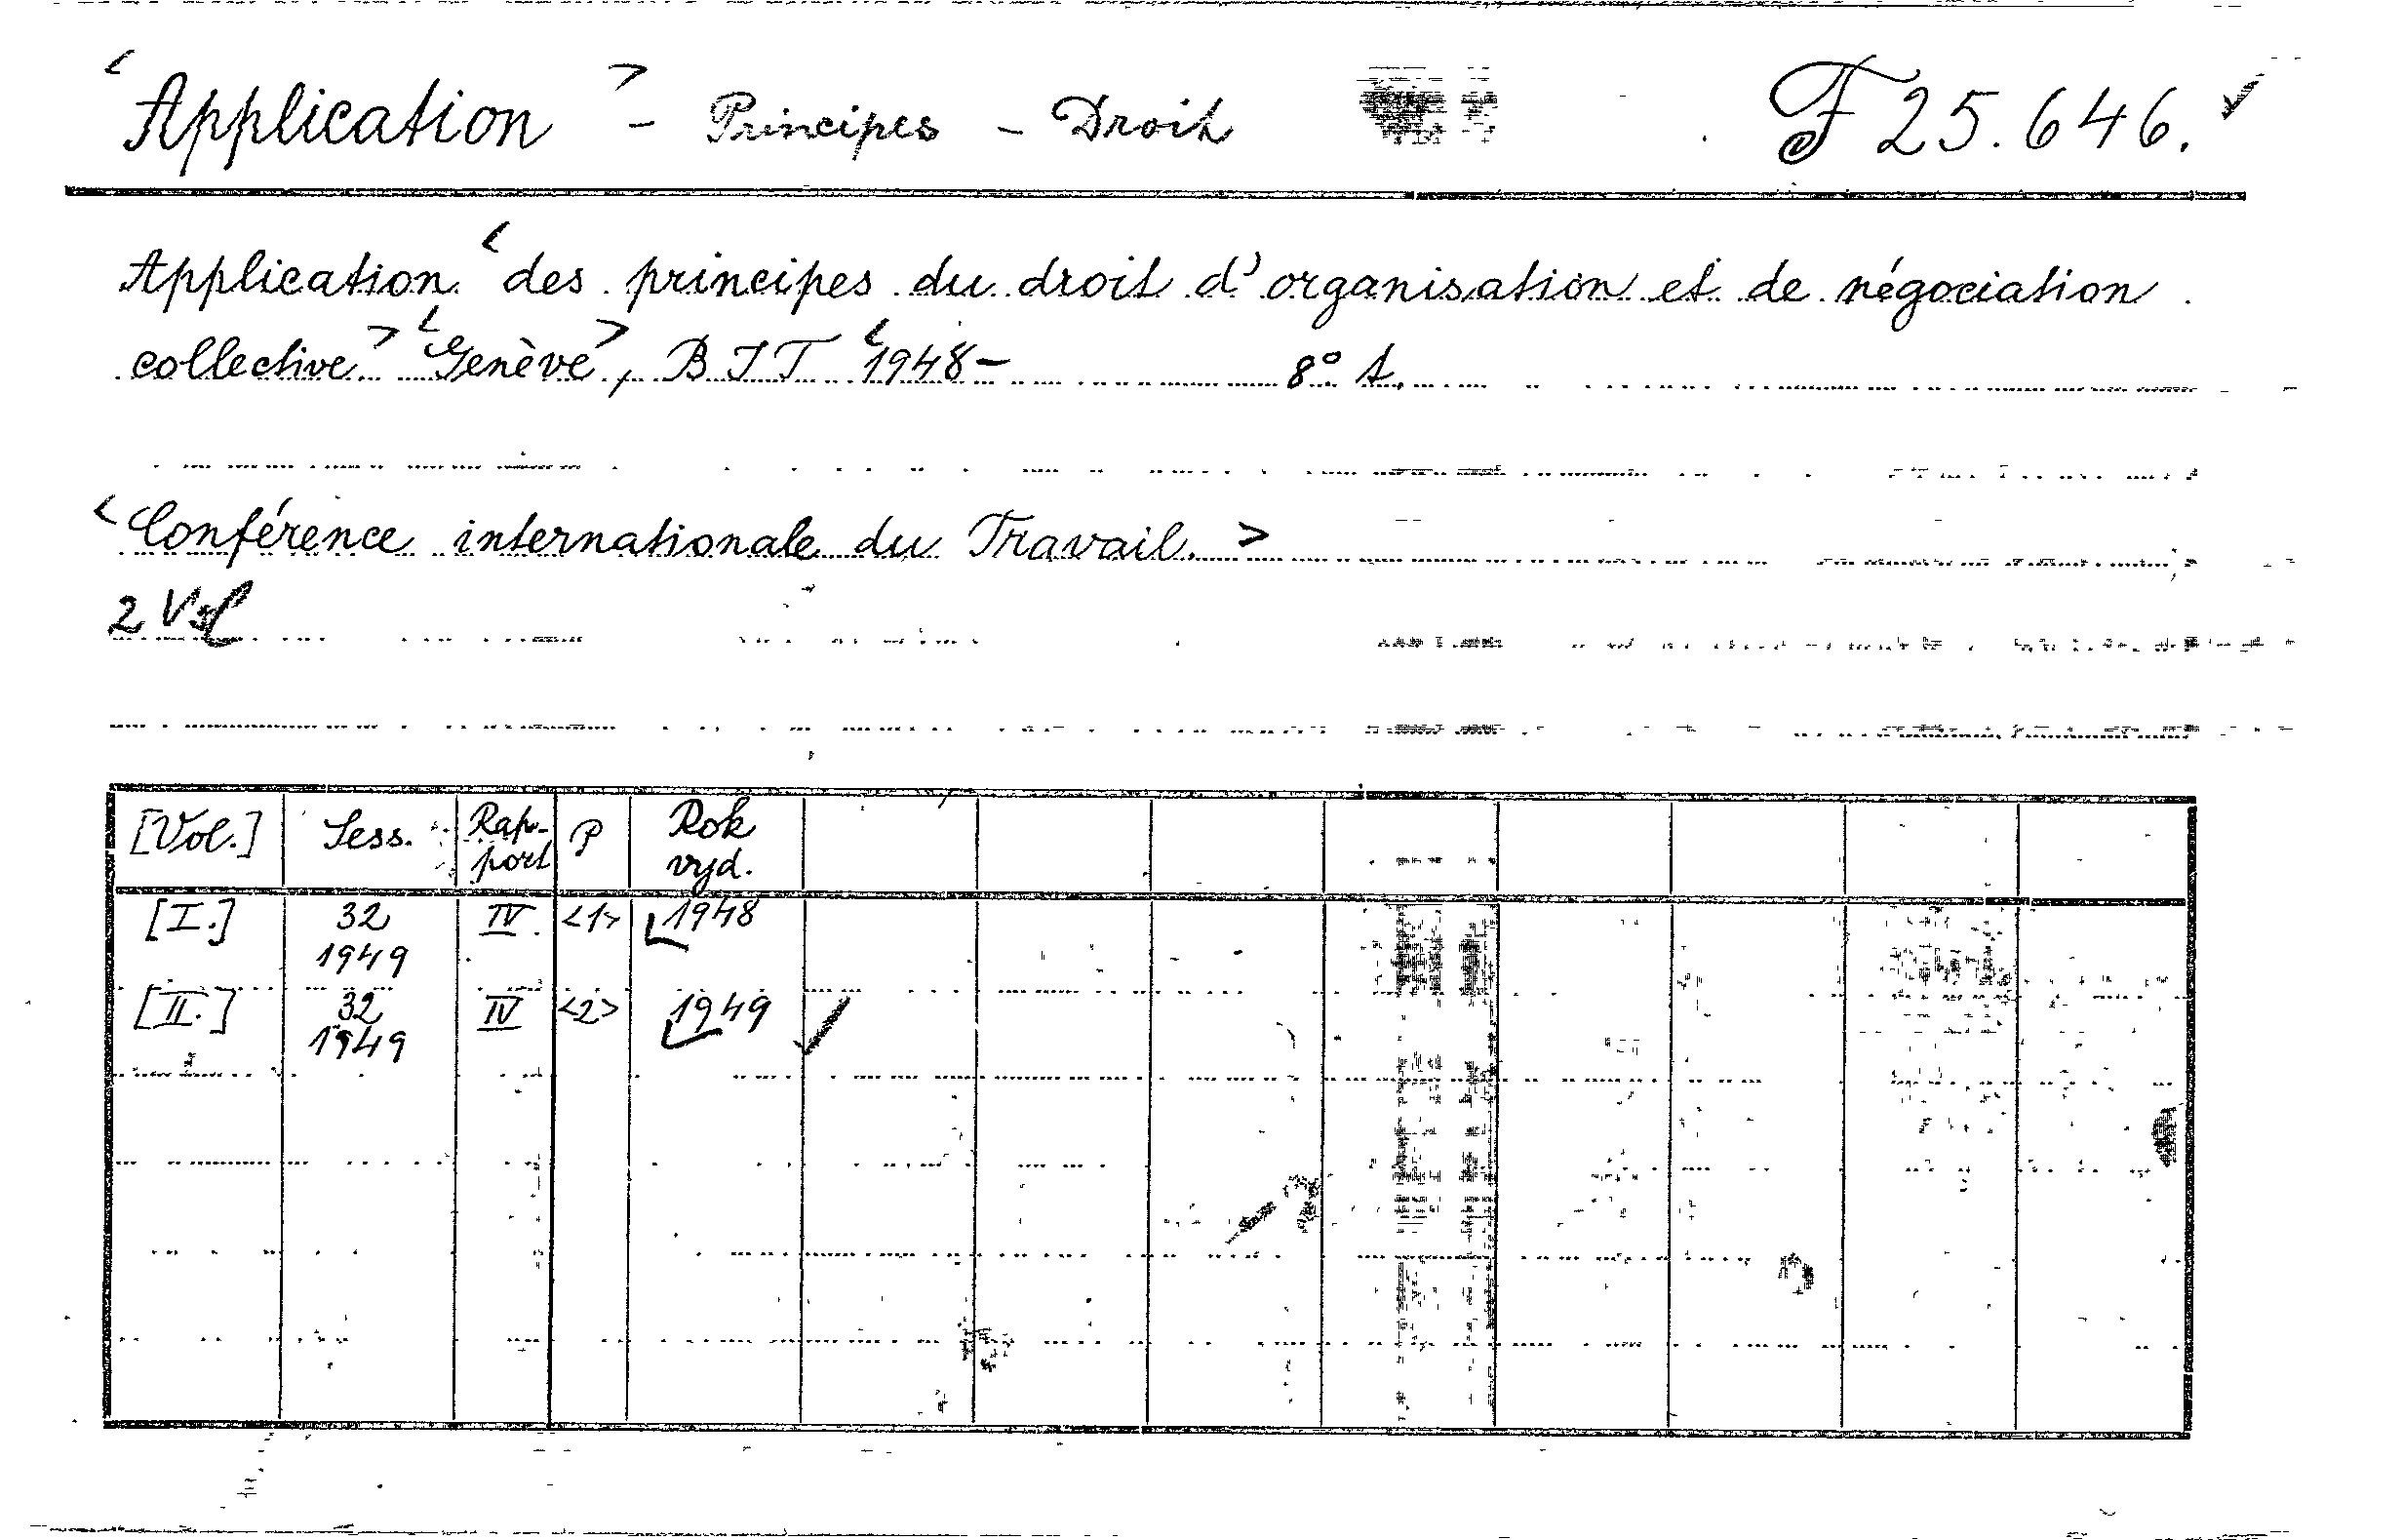 <Application> - Principes - Droit F 25.646. ✓
Application <des principes du droit d'organisation et de négociation
collective> <Genève>, BIT <1948- 8° A.
<Conférence internationale du Travail.>
2 Vol
[Vol.] Sess. Rap- P Rok
port vyd.
[I.] 32 IV. <1> 1948
1949
[II.] 32 IV <2> 1949 ✓
1949